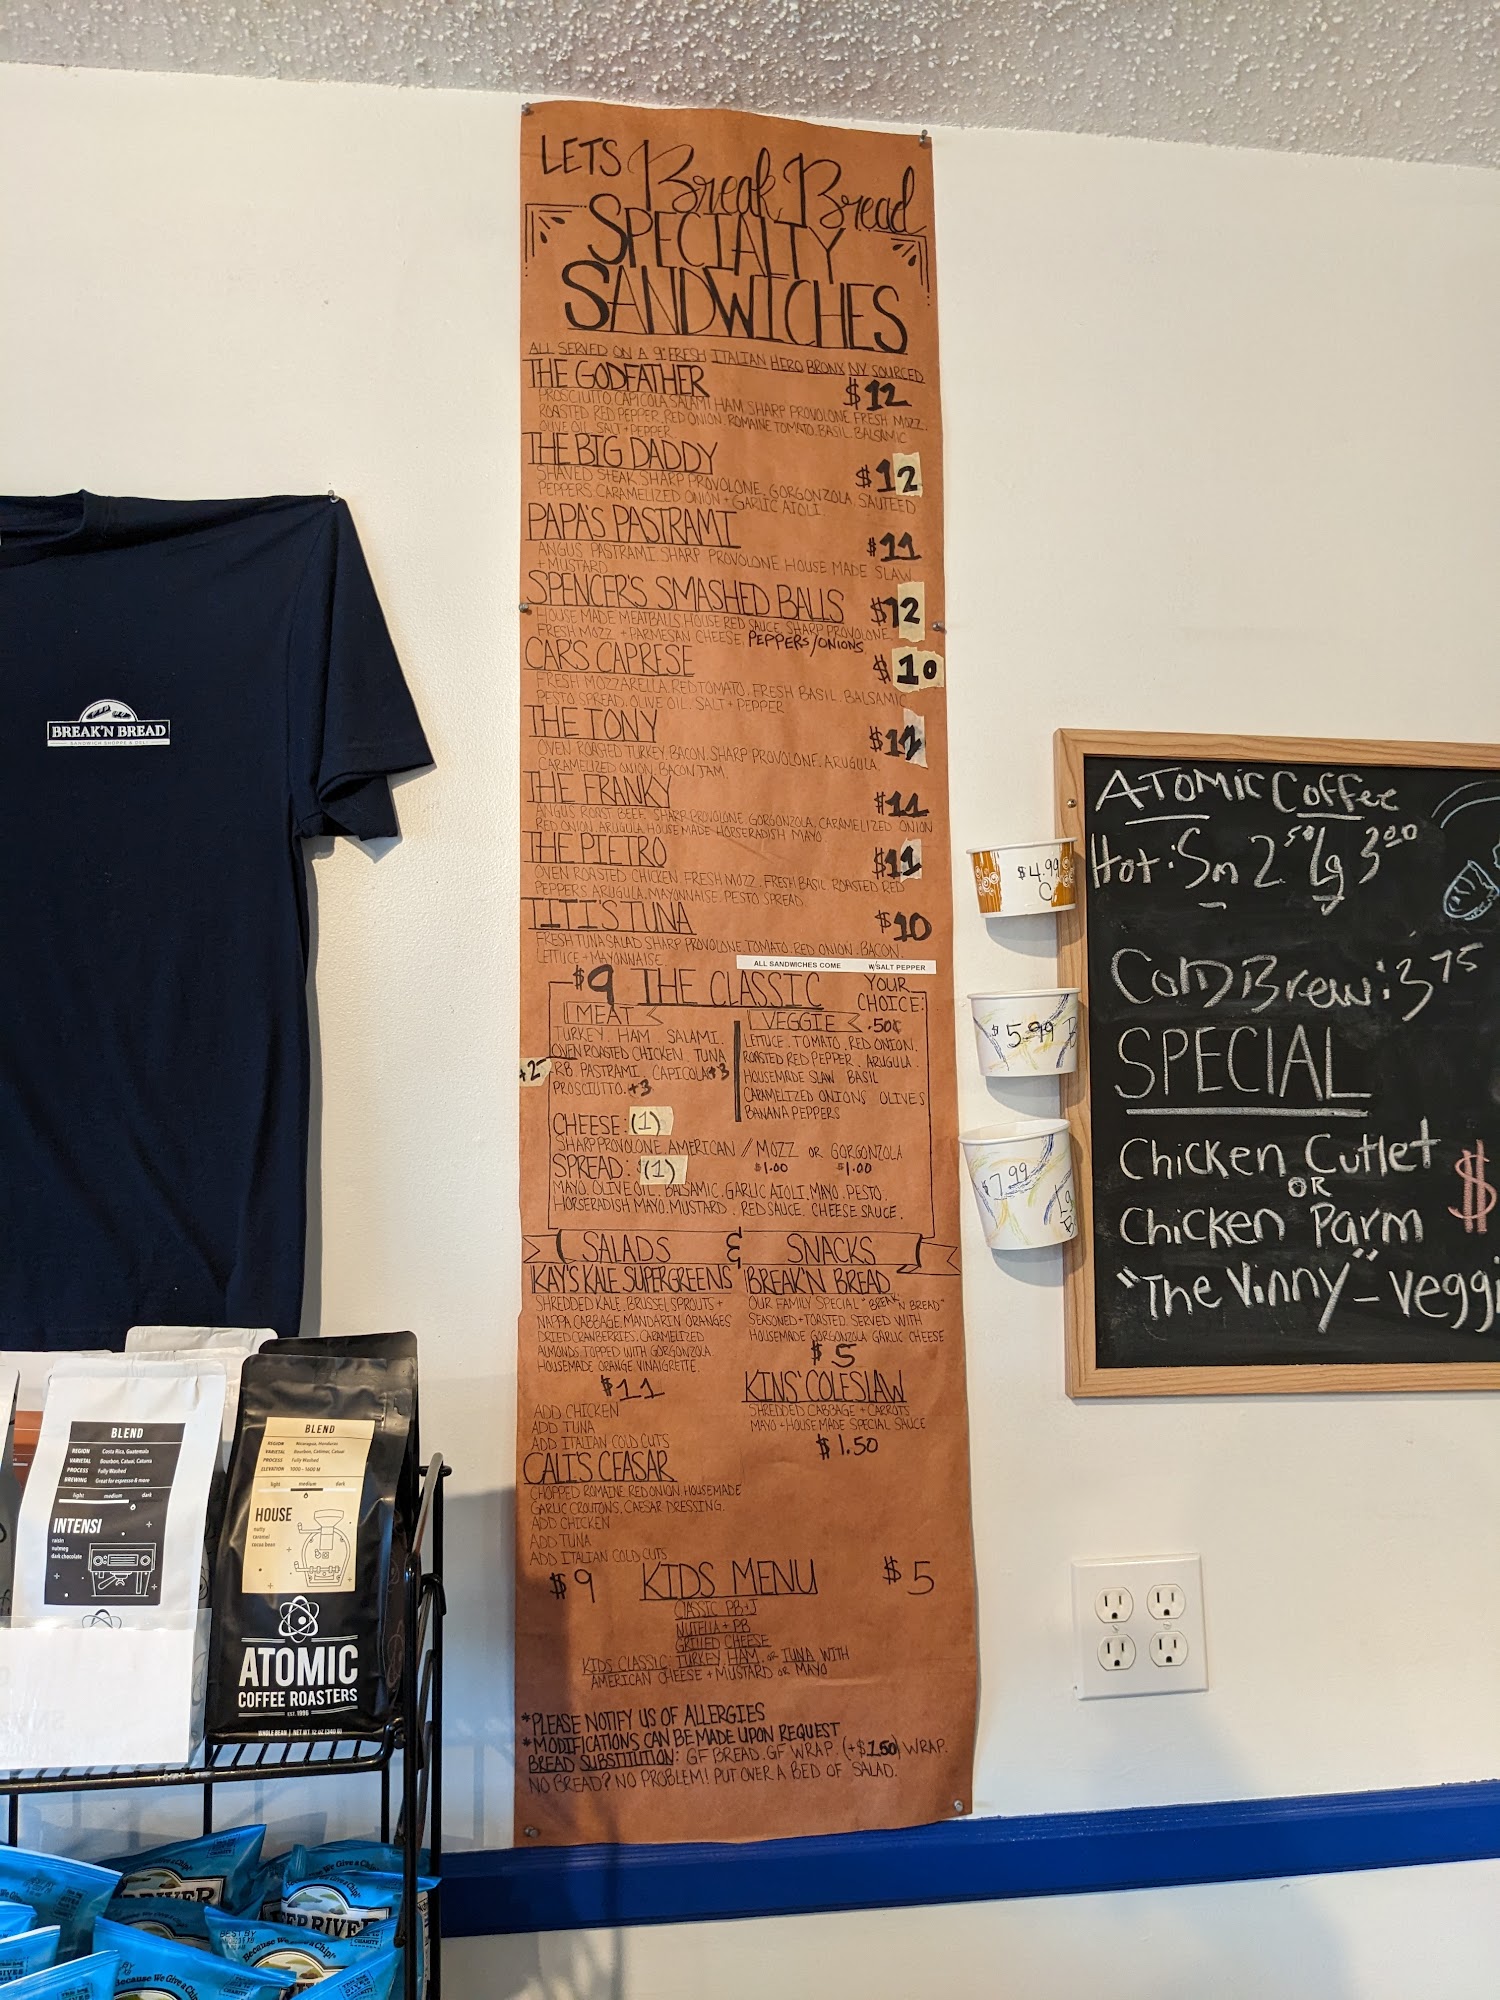 LETS Break Bread
SPECIALTY
SANDWICHES
ALL SERVED ON A 9" FRESH ITALIAN HERO BRONX NY SOURCED
THE GODFATHER $12
PROSCIUTTO, CAPICOLA, SALAMI, HAM, SHARP PROVOLONE, FRESH MOZZ.
ROASTED RED PEPPER, RED ONION, ROMAINE, TOMATO, BASIL, BALSAMIC
OLIVE OIL, SALT + PEPPER
THE BIG DADDY $12
SHAVED STEAK, SHARP PROVOLONE, GORGONZOLA, SAUTEED
PEPPERS, CARAMELIZED ONION + GARLIC AIOLI.
PAPA'S PASTRAMI $11
ANGUS PASTRAMI, SHARP PROVOLONE, HOUSE MADE SLAW
+ MUSTARD
SPENCER'S SMASHED BALLS $12
HOUSE MADE MEATBALLS, HOUSE RED SAUCE, SHARP PROVOLONE,
FRESH MOZZ + PARMESAN CHEESE, PEPPERS/ONIONS
CARS CAPRESE $10
FRESH MOZZARELLA, RED TOMATO, FRESH BASIL, BALSAMIC
PESTO SPREAD, OLIVE OIL, SALT + PEPPER
THE TONY $12
OVEN ROASTED TURKEY, BACON, SHARP PROVOLONE, ARUGULA,
CARAMELIZED ONION, BACON JAM.
THE FRANKY $11
ANGUS ROAST BEEF, SHARP PROVOLONE, GORGONZOLA, CARAMELIZED ONION
RED ONION, ARUGULA, HOUSEMADE HORSERADISH MAYO
THE PIETRO $11
OVEN ROASTED CHICKEN, FRESH MOZZ, FRESH BASIL, ROASTED RED
PEPPERS, ARUGULA, MAYONNAISE, PESTO SPREAD
TITI'S TUNA $10
FRESH TUNA SALAD, SHARP PROVOLONE, TOMATO, RED ONION, BACON,
LETTUCE + MAYONNAISE.
ALL SANDWICHES COME W/SALT PEPPER
$9 THE CLASSIC YOUR
CHOICE:
MEAT
TURKEY, HAM, SALAMI,
OVEN ROASTED CHICKEN, TUNA
+2- RB, PASTRAMI, CAPICOLA +3
PROSCIUTTO. +3
VEGGIE .50¢
LETTUCE, TOMATO, RED ONION,
ROASTED RED PEPPER, ARUGULA,
HOUSEMADE SLAW, BASIL
CARAMELIZED ONIONS, OLIVES
BANANA PEPPERS
CHEESE: (1)
SHARP PROVOLONE, AMERICAN // MOZZ OR GORGONZOLA
$1.00 $1.00
SPREAD: (1)
MAYO, OLIVE OIL, BALSAMIC, GARLIC AIOLI, MAYO, PESTO,
HORSERADISH MAYO, MUSTARD, RED SAUCE, CHEESE SAUCE.
SALADS & SNACKS
KAY'S KALE SUPERGREENS
SHREDDED KALE, BRUSSEL SPROUTS +
NAPPA CABBAGE, MANDARIN ORANGES
DRIED CRANBERRIES, CARAMELIZED
ALMONDS, TOPPED WITH GORGONZOLA
HOUSEMADE ORANGE VINAIGRETTE
$11
ADD CHICKEN
ADD TUNA
ADD ITALIAN COLD CUTS
CALI'S CEASAR
CHOPPED ROMAINE, RED ONION, HOUSEMADE
GARLIC CROUTONS, CAESAR DRESSING.
ADD CHICKEN
ADD TUNA
ADD ITALIAN COLD CUTS
$9
BREAK'N BREAD
OUR FAMILY SPECIAL "BREAK'N BREAD"
SEASONED + TOASTED. SERVED WITH
HOUSEMADE GORGONZOLA GARLIC CHEESE
$5
KINS' COLESLAW
SHREDDED CABBAGE + CARROTS
MAYO + HOUSE MADE SPECIAL SAUCE
$1.50
KIDS MENU $5
CLASSIC PB+J
NUTELLA + PB
GRILLED CHEESE
KIDS CLASSIC: TURKEY, HAM, OR TUNA WITH
AMERICAN CHEESE + MUSTARD OR MAYO
*PLEASE NOTIFY US OF ALLERGIES
*MODIFICATIONS CAN BE MADE UPON REQUEST
BREAD SUBSTITUTION: GF BREAD, GF WRAP, (+$1.50) WRAP.
NO BREAD? NO PROBLEM! PUT OVER A BED OF SALAD.
BREAK'N BREAD
SANDWICH SHOPPE & DELI
$4.99
C
$5.99
$7.99
Lg
ATOMIC Coffee
Hot: Sm 2.50 Lg 3.00
Cold Brew: 3.75
SPECIAL
Chicken Cutlet
OR
Chicken Parm $
"The Vinny" - Veggi
BLEND
REGION Costa Rica, Guatemala
VARIETAL Bourbon, Catuai, Caturra
PROCESS Fully Washed
BREWING Great for espresso & more
light medium dark
INTENSI
raisin
nutmeg
dark chocolate
BLEND
REGION Nicaragua, Honduras
VARIETAL Bourbon, Catimor, Catuai
PROCESS Fully Washed
ELEVATION 1000 - 1600 M
light medium dark
HOUSE
nutty
caramel
cocoa bean
ATOMIC
COFFEE ROASTERS
EST. 1996
WHOLE BEAN | NET WT 12 OZ (340 G)
Because We Give a Chip!
RIVER
EEP RIVER
Because We Give a Chip!